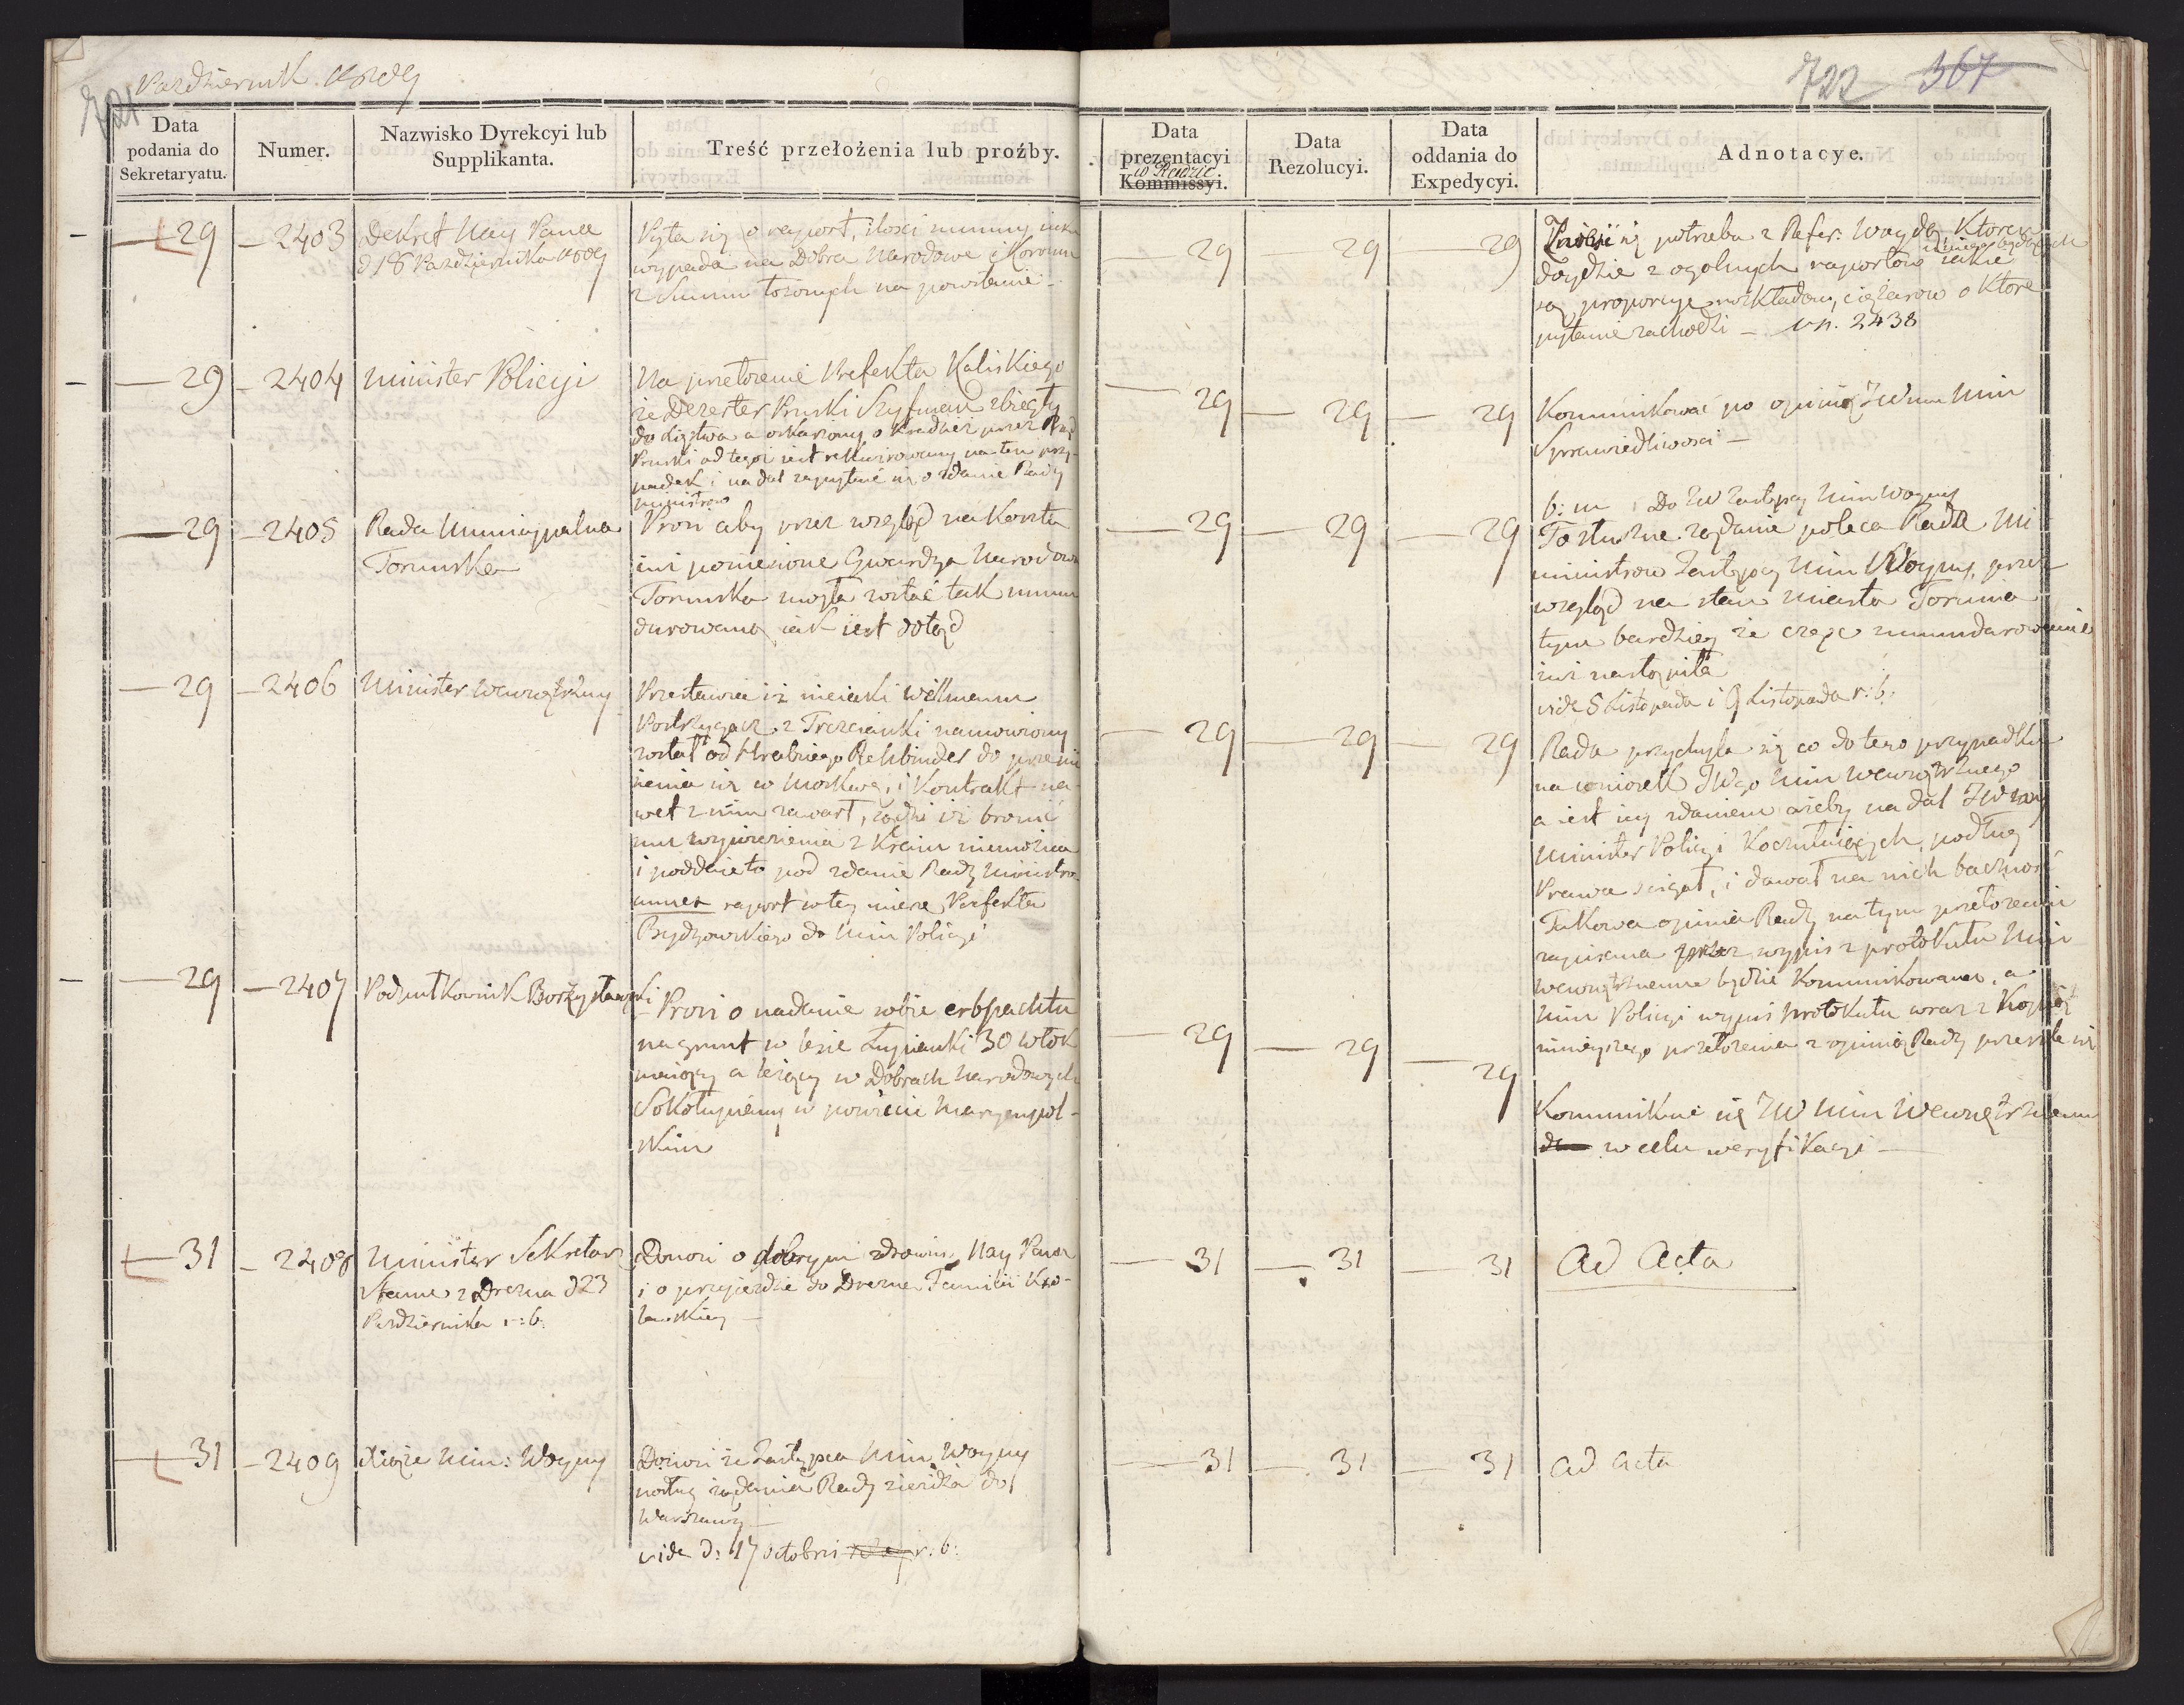 Pazdziernik 1809
721
722 367
Data
podania do
Sekretaryatu.
Numer.
Nazwisko Dyrekcyi lub
Supplikanta.
Treść przełożenia lub proźby.
Data
prezentacyi
w Radzie
Kommissyi.
Data
Rezolucyi.
Data
oddania do
Expedycyi.
Adnotacye.
29 - 2403 Dekret Nay Pana
d 18 Pazdziernika 1809
Pyta się o raport, ilosci summy iaka
wypada na Dobra Narodowe i Koronne
z Summ łożonych na powstanie -
29 29 29
Znosić się potrzeba z Refer: Woydą, Ktoren
doydzie z ogolnych raportow iakie
są proporcye rozkładow, ciężarow o Ktore
pytanie zachodzi - vn. 2438
29 - 2404 Minister Policyi
Na przełożenie Prefekta Kaliskiego
że Dezerter Pruski Szyfman zbiegły
do Xięstwa a oskarżony o kradzież przez Rząd
Pruski od tegoż iest rekwirowany na ten przy-
padek i nadal zapytanie się o zdanie Rady
Ministrow
29 29 29
Kommunikować po opinię JWmu Min
Sprawiedliwosci -
29 - 2405 Rada Municypalna
Torunska
Prosi aby przez wzgląd na koszta
iuż poniesione Gwardya Narodowa
Torunska mogła zostać tak mun
durowaną iak iest dotąd
29 29 29
b: m Do JW Zastępcy Min Woyny
To słuszne żądanie poleca Rada Mi
nistrow Zastępcy Min Woyny, przez
wzgląd na stan miasta Torunia
tym bardziey że część umundurowania
iuż nastąpiła
vide 8 Listopada i 9 Listopada r: b:
29 - 2406 Minister Wewnętrzny
Przestawia iż nieiaki Wellmann
Postrzygacz z Trzcianki namowiony
został od Hrabiego Rehbinder do przenie
sienia się w Moskwę, i Kontrakt na-
wet z nim zawarł, sądzi iż bronić
mu wyniesienia z Kraiu niemożna
i poddaie to pod zdanie Rady Ministro
annex raport w tey mierze Prefekta
Bydgowskiego do Min Policyi
29 29 29
Rada przychyla się co do tego przypadku
na wniosek JWgo Min Wewnętrznego
a iest iey zdaniem ażeby nadal JW
Minister Policyi Koczuiących, podług
Prawa scigał, i dawał na nich baczność
Takowa opinia Rady na tym przełożeniu
zapisana przez wypis z protokułu Min
Wewnętrznemu będzie Kommunikowana, a
Min Policyi wypis protokułu wraz z Kopią
ninieyszego przełożenia z opinią Rady przeszle się
29 - 2407 Podpułkownik Borzysławski
Prosi o nadanie sobie erbpachtu
na grunt w lesie Łupianki 30 włok
maiący a leżący w Dobrach Narodowych
Sokołupiany w powiecie Maryampol-
skim
29 29 29
Kommunikuie się JW Min Wewnętrznemu
w celu weryfikacyi -
31 - 2408 Minister Sekretarz
Stanu z Drezna d 23
Pazdziernika r: b:
Donosi o dobrym zdrowiu, Nay Pana
i o przyjezdzie do Drezna Familii Kró-
lewskiey -
31 31 31
Ad Acta
31 - 2409 Xiąże Min: Woyny
Donosi że Zastępca Min Woyny
podług żądania Rady ziezdza do
Warszawy -
vide d: 17 octobris r. b:
31 31 31
ad acta